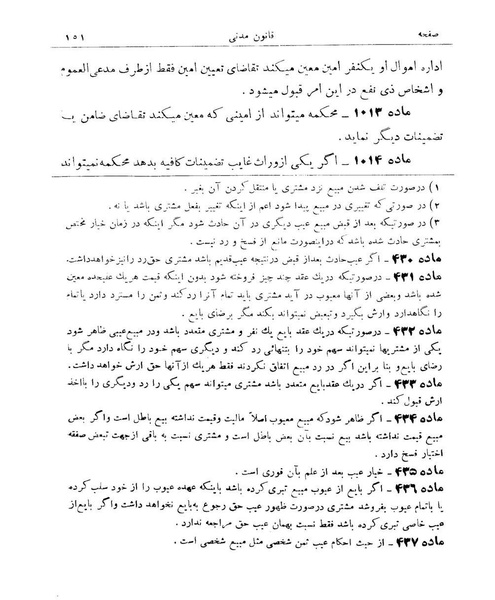 صفحه قانون مدنی ۱۵۱
اداره اموال او یکنفر امین معین میکند تقاضای تعیین امین فقط از طرف مدعی العموم
و اشخاص ذی نفع در این امر قبول میشود .
ماده ۱۰۱۳ ـ محکمه میتواند از امینی که معین میکند تقاضای ضامن یا
تضمینات دیگر نماید .
ماده ۱۰۱۴ ـ اگر یکی از وراث غایب تضمینات کافیه بدهد محکمه نمیتواند
۱) در صورت تلف شدن مبیع نزد مشتری یا منتقل کردن آن بغیر .
۲) در صورتی که تغییری در مبیع پیدا شود اعم از اینکه تغییر بفعل مشتری باشد یا نه .
۳) در صورتیکه بعد از قبض مبیع عیب دیگری در آن حادث شود مگر اینکه در زمان خیار مختص
بمشتری حادث شده باشد که در اینصورت مانع از فسخ و رد نیست .
ماده ۴۳۰ ـ اگر عیب حادث بعد از قبض در نتیجه عیب قدیم باشد مشتری حق رد را نیز خواهد داشت.
ماده ۴۳۱ ـ در صورتیکه در یک عقد چند چیز فروخته شود بدون اینکه قیمت هر یک علیحده معین
شده باشد و بعضی از آنها معیوب در آید مشتری باید تمام آنرا رد کند و ثمن را مسترد دارد یا تمام
را نگاهدارد و ارش بگیرد و تبعیض نمیتواند بکند مگر برضای بایع .
ماده ۴۳۲ ـ در صورتیکه در یک عقد بایع یک نفر و مشتری متعدد باشد و در مبیع عیبی ظاهر شود
یکی از مشتریها نمیتواند سهم خود را بتنهائی رد کند و دیگری سهم خود را نگاه دارد مگر با
رضای بایع و بنا بر این اگر در رد مبیع اتفاق نکردند فقط هر یک از آنها حق ارش خواهد داشت.
ماده ۴۳۳ ـ اگر در یک عقد بایع متعدد باشد مشتری میتواند سهم یکی را رد و دیگری را با اخذ
ارش قبول کند .
ماده ۴۳۴ ـ اگر ظاهر شود که مبیع معیوب اصلاً مالیت و قیمت نداشته بیع باطل است و اگر بعض
مبیع قیمت نداشته باشد بیع نسبت بآن بعض باطل است و مشتری نسبت به باقی از جهت تبعض صفقه
اختیار فسخ دارد .
ماده ۴۳۵ ـ خیار عیب بعد از علم بآن فوری است .
ماده ۴۳۶ ـ اگر بایع از عیوب مبیع تبری کرده باشد باینکه عهده عیوب را از خود سلب کرده
یا با تمام عیوب بفروشد مشتری در صورت ظهور عیب حق رجوع به بایع نخواهد داشت و اگر بایع از
عیب خاصی تبری کرده باشد فقط نسبت بهمان عیب حق مراجعه ندارد .
ماده ۴۳۷ ـ از حیث احکام عیب ثمن شخصی مثل مبیع شخصی است .